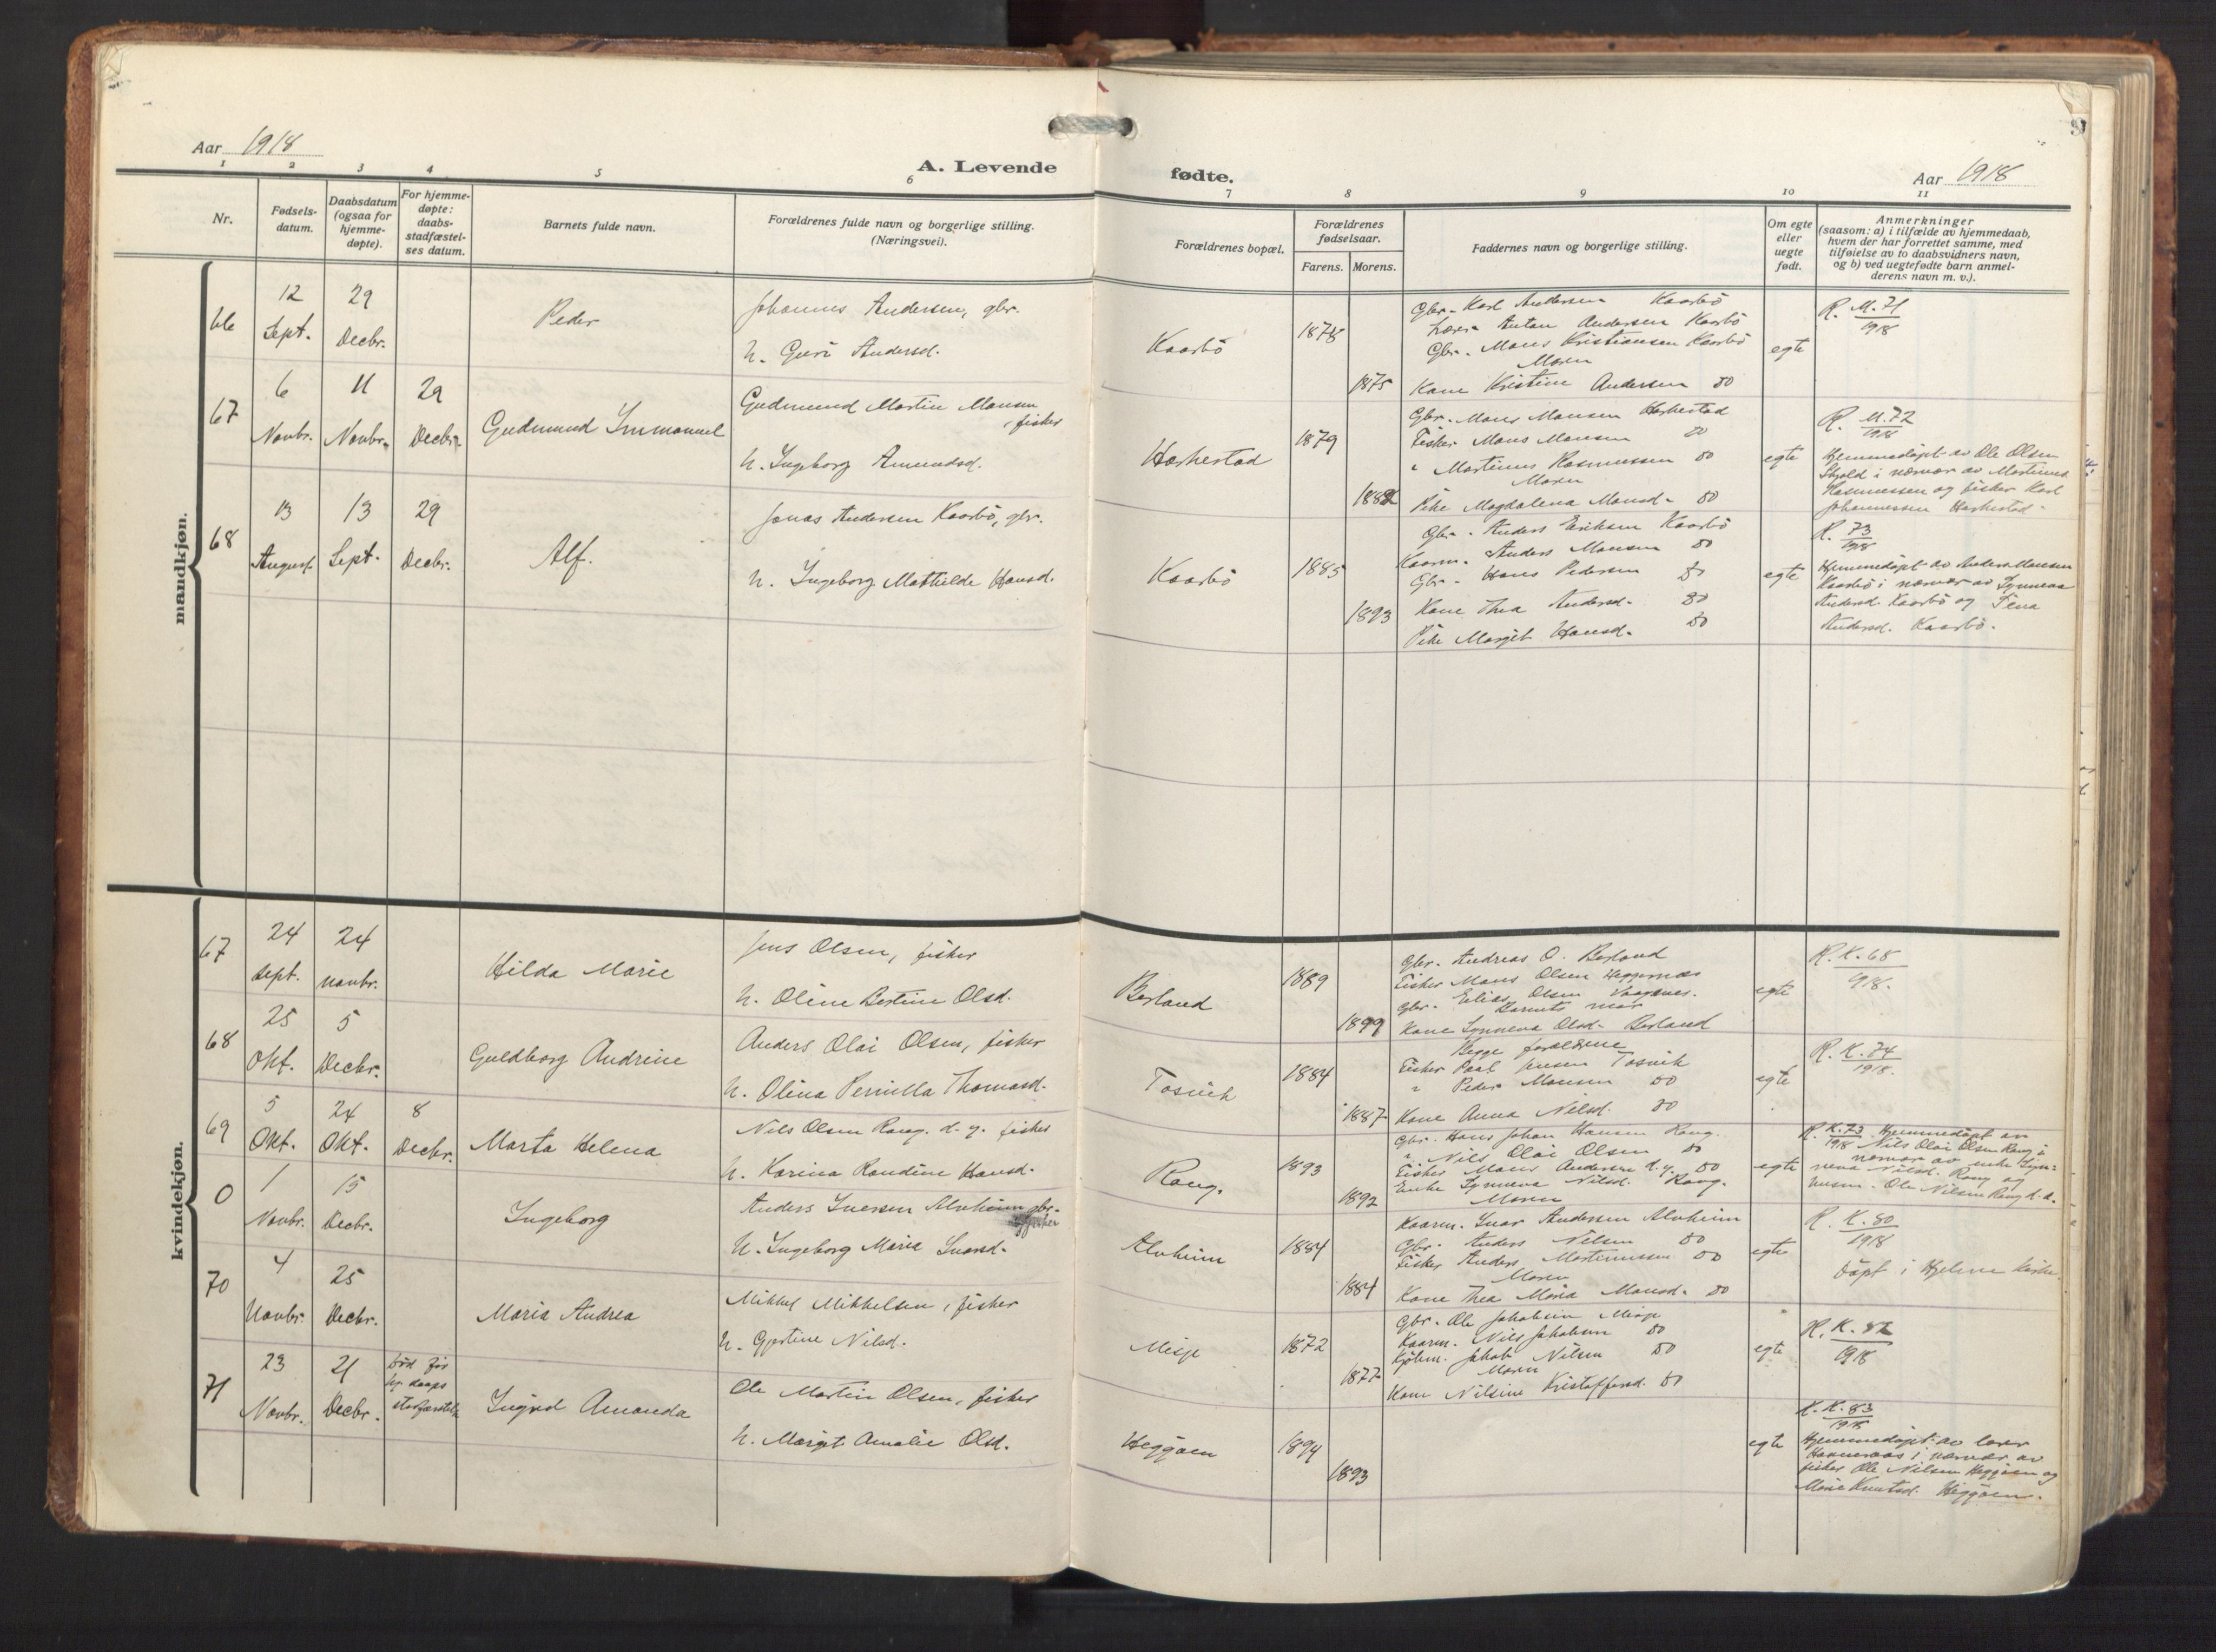 Aar 1918
A. Levende
fødte.
Aar 1918
1 2 3 4 5 6 7 8 9 10 11
Nr.
Fødsels-
datum.
Daabsdatum
(ogsaa for
hjemme-
døpte).
For hjemme-
døpte:
daabs-
stadfæstel-
ses datum.
Barnets fulde navn.
Forældrenes fulde navn og borgerlige stilling.
(Næringsvei).
Forældrenes bopæl.
Forældrenes
fødselsaar.
Farens. Morens.
Faddernes navn og borgerlige stilling.
Om egte
eller
uegte
født.
Anmerkninger
(saasom: a) i tilfælde av hjemmedaab,
hvem der har forrettet samme, med
tilføielse av to daabsvidners navn,
og b) ved uegtefødte barn anmel-
derens navn m. v.).
mandkjøn.
66
12
Sept.
29
Decbr.
Peder
Johannes Andersen, gbr.
h. Guri Andersd.
Kaarbø
1878
1875
Gbr. Karl Andersen Kaarbø
Lærer Anton Andersen Kaarbø
Gbr. Mons Kristiansen Kaarbø
Moren
Kone Kristine Andersen do
egte
R. M. 71
1918
67
6
Novbr.
11
Novbr.
29
Decbr.
Gudmund Immanuel
Gudmund Martin Monsen
, fisker
h. Ingeborg Amundsd.
Harkestad
1879
1882
Gbr. Mons Monsen Harkestad
Fisker Mons Monsen do
" Martinus Rasmussen do
Moren
Pike Magdalena Monsd. do
egte
R. M. 72
1918
Hjemmedøpt av Ole Olsen
Skjold i nærvær av Martinus
Rasmussen og fisker Karl
Johannessen Harkestad.
68
13
August
13
Sept.
29
Decbr.
Alf.
Jonas Andersen Kaarbø, gbr.
h. Ingeborg Mathilde Hansd.
Kaarbø
1885
1893
Gbr. Anders Eriksen Kaarbø
Kaarm. Anders Monsen do
Gbr. Hans Pedersen do
Kone Thea Andersd. do
Pike Margit Hansd. do
egte
R. 73
1918
Hjemmedøpt av Anders Monsen
Kaarbø i nærvær av Synneva
Andersd. Kaarbø og Tena
Andersd. Kaarbø.
kvindekjøn.
67
24
sept.
24
novbr.
Hilda Marie
Jens Olsen, fisker
h. Oline Bertine Olsd.
Børland
1889
1899
Gbr. Andreas O. Børland
Fisker Mons Olsen Heggernæs
Gbr. Elias Olsen
Barnets mor
Kone Synneva Olsd. Børland
egte
R. K. 68
1918.
68
25
Okt.
5
Decbr.
Guldborg Andrine
Anders Olai Olsen, fisker
h. Olina Pernilla Thomasd.
Tosvik
1884
1887
Begge forældrene
Fisker Paal Jensen Tosvik
" Peder Monsen do
Kone Anna Nilsd. do
egte
R. K. 74
1918.
69
5
Okt.
24
Okt.
8
Decbr.
Marta Helena
Nils Olsen Rong. d. y. fisker
h. Karina Randine Hansd.
Rong.
1893
1892
Gbr. Hans Johan Hansen Rong.
" Nils Olai Olsen do
Fisker Mons Andersen d. y. do
Enke Synneva Nilsd. Rong.
Moren
egte
R. K. 73 Hjemmedøpt av
1918 Nils Olai Olsen Rong i
nærvær av enke Syn=
neva Nilsd. Rong og
husm. Ole Nilsen Rong d. e.
0
1
Novbr.
15
Decbr.
Ingeborg
Anders Iversen Alvheim gbr.
og fisker
h. Ingeborg Maria Ivarsd.
Alvheim
1884
1884
Kaarm. Ivar Andersen Alvheim
Gbr. Anders Nilsen do
Fisker Anders Martinussen do
Moren
Kone Thea Maria Monsd. do
egte
R. K. 80
1918
Døpt i Hjelme kirke.
70
4
Novbr.
25
Decbr.
Maria Andrea
Mikkel Mikkelsen, fisker
h. Gjertine Nilsd.
Misje
1872
1877
Gbr. Ole Jakobsen Misje
Kaarm. Nils Jakobsen do
Kjøbm. Jakob Nilsen do
Moren
Kone Nilsine Kristoffersd. do
egte
R. K. 82
1918
71
23
Novbr.
21
Decbr.
død før
daaps
stadfæstelse
Ingrid Amanda
Ole Martin Olsen, fisker
h. Margit Amalie Olsd.
Heggøen
1894
1893
egte
R. K. 83
1918
Hjemmedøpt av lærer
Hannevaas i nærvær av
fisker Ole Nilsen Heggøen og
Marie Knutsd. Heggøen.